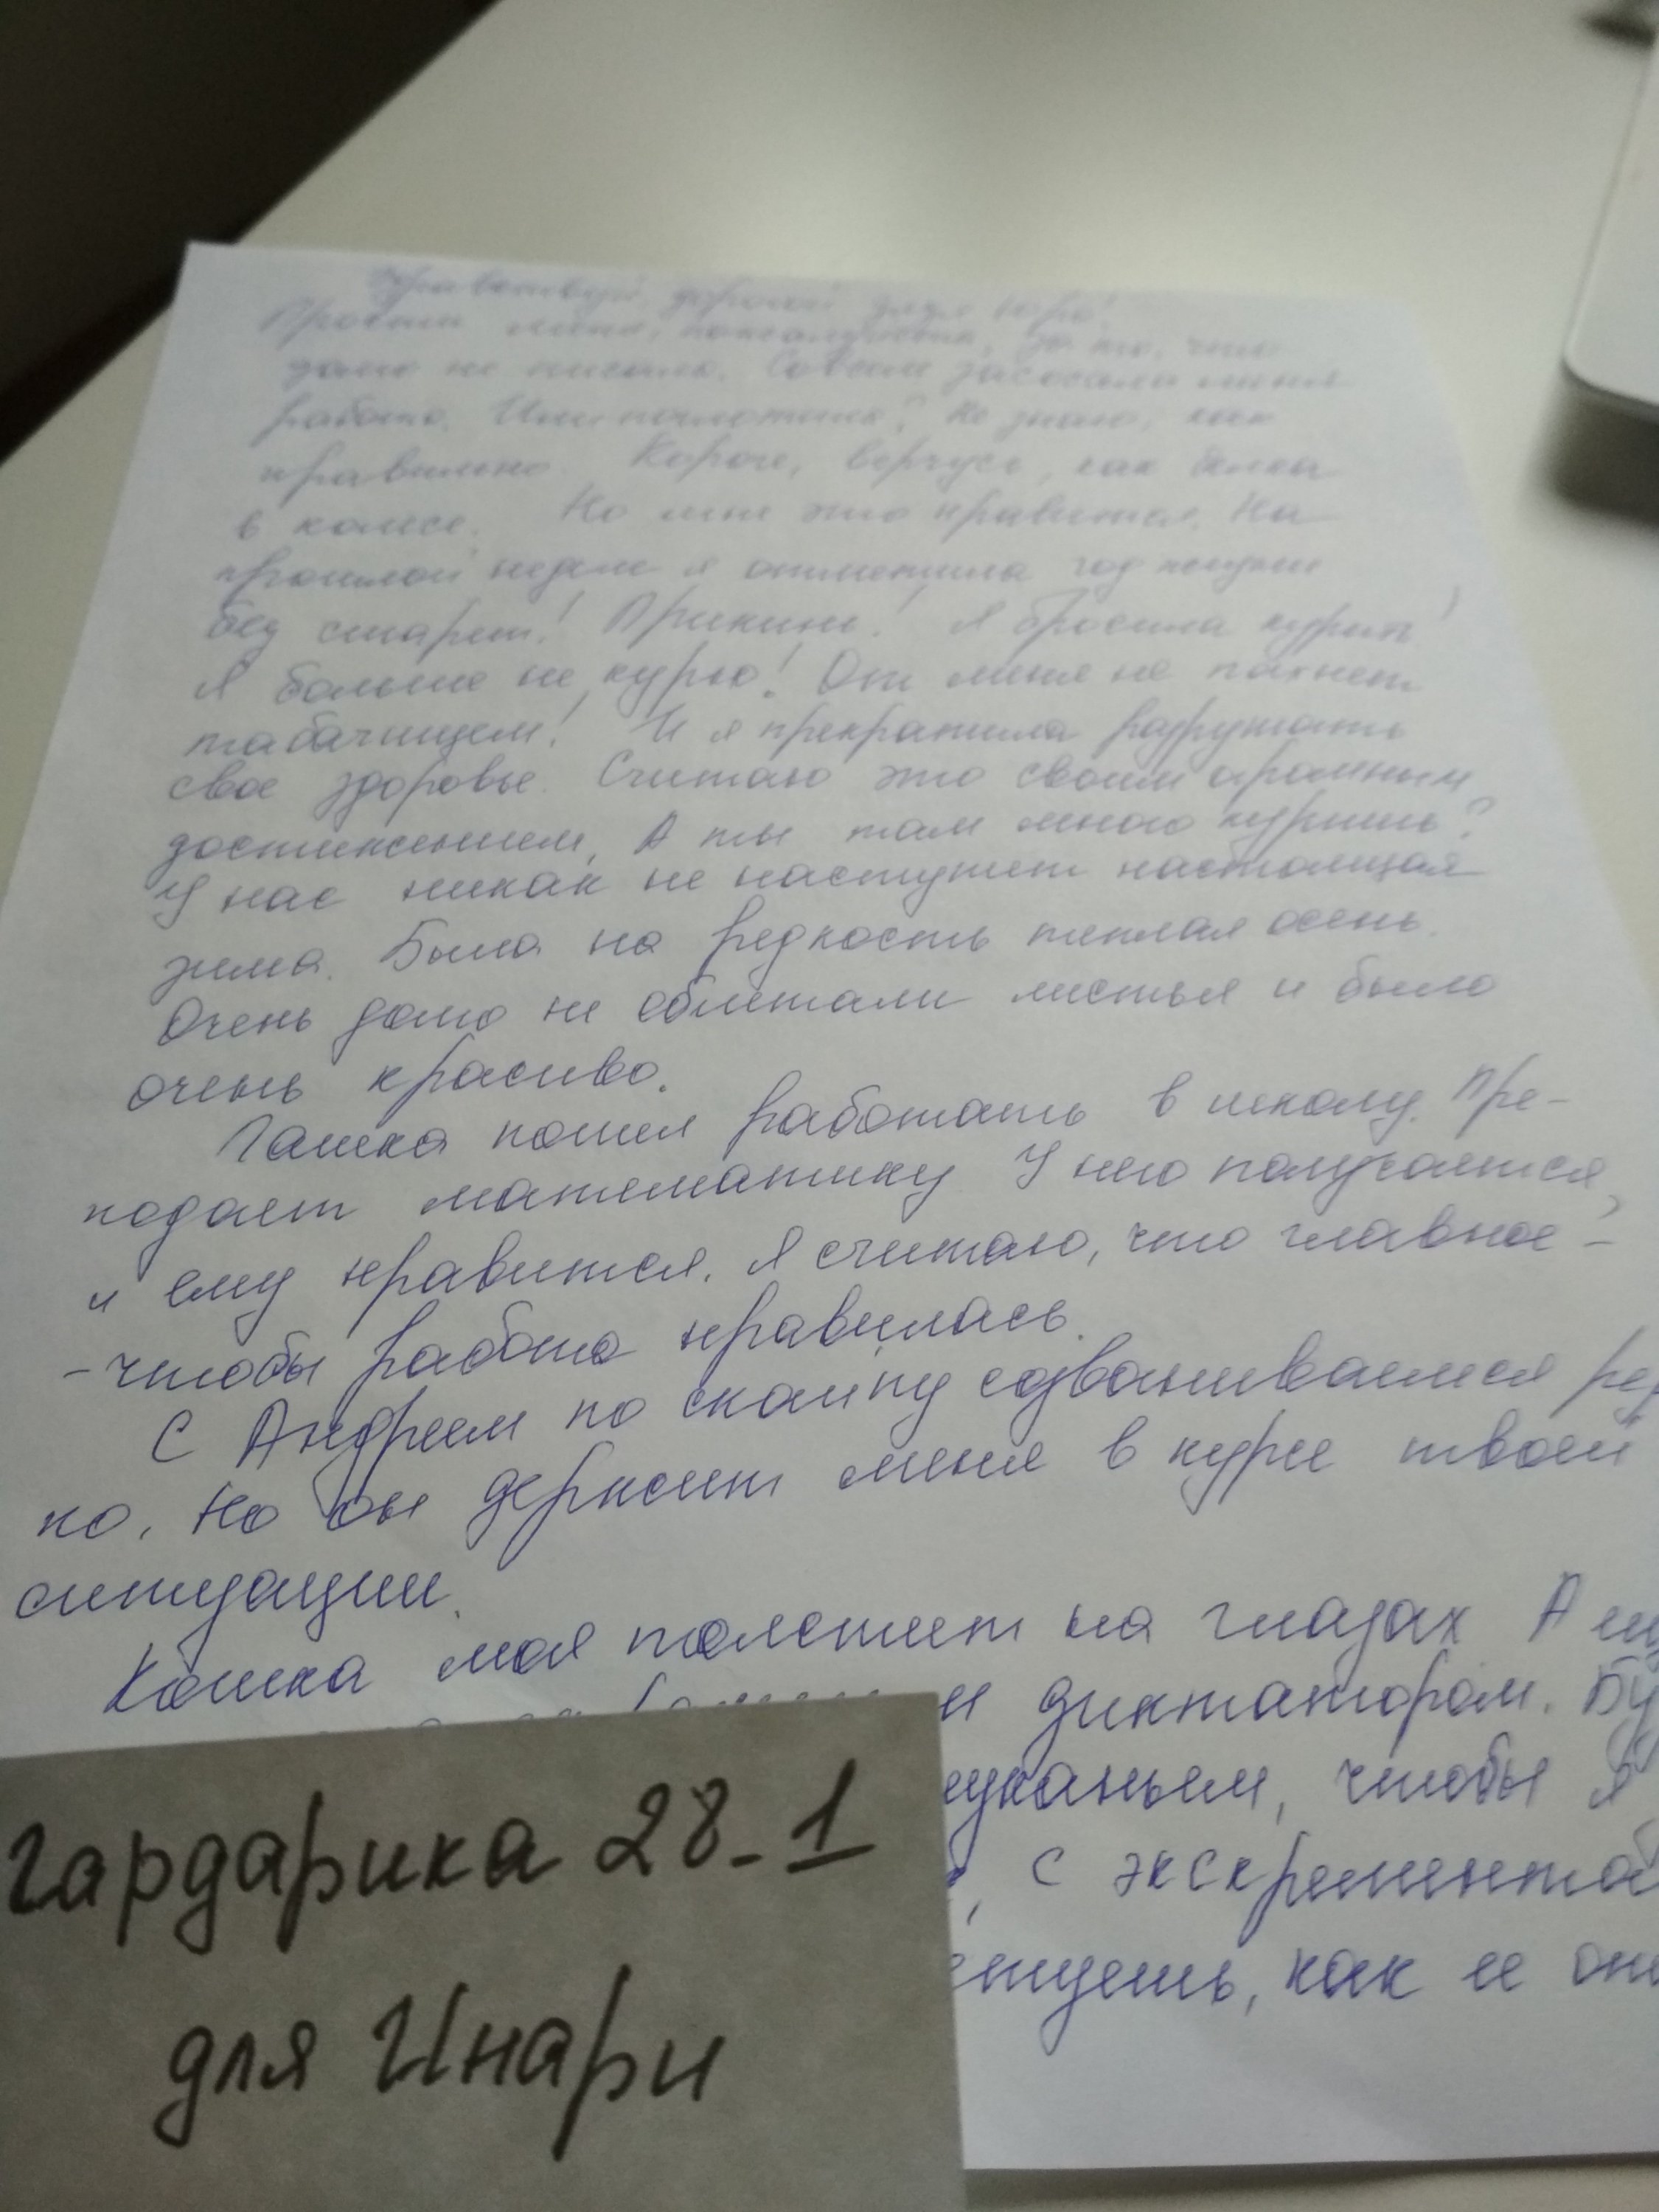 Здравствуй, дорогой дядя Юра!
Прости меня, пожалуйста, за то, что
давно не писала. Совсем засосала меня
работа. Или поглотила? Не знаю, как
правильно. Короче, верчусь, как белка
в колесе. Но мне это нравится. На
прошлой неделе я отметила год жизни
без сигарет! Прикинь! Я бросила курить!
Я больше не курю! От меня не пахнет
табачищем! И я прекратила разрушать
свое здоровье. Считаю это своим огромным
достижением. А ты там много куришь?
У нас никак не наступит настоящая
зима. Была на редкость теплая осень.
Очень долго не облетали листья и было
очень красиво.
Пашка пошел работать в школу. Пре-
подает математику. У него получается,
и ему нравится. Я считаю, что главное -
- чтобы работа нравилась.
С Андреем по скайпу созваниваемся ред
ко. Но он держит меня в курсе твоей
ситуации.
Кошка моя толстеет на глазах. А
диктатором.
чтобы я
с
как ее
Гардарика 28-1
для Инари